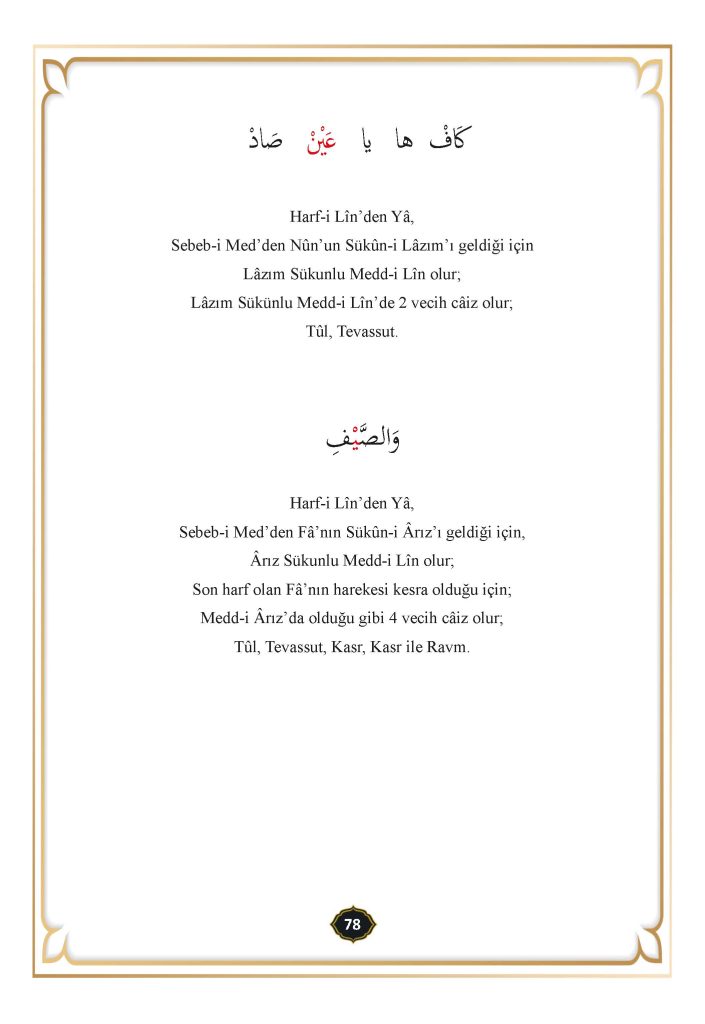 كَافْ هَا يَا عَيْنْ صَادْ
Harf-i Lîn’den Yâ,
Sebeb-i Med’den Nûn’un Sükûn-i Lâzım’ı geldiği için
Lâzım Sükunlu Medd-i Lîn olur;
Lâzım Sükünlu Medd-i Lîn’de 2 vecih câiz olur;
Tûl, Tevassut.
وَالصَّيْفِ
Harf-i Lîn’den Yâ,
Sebeb-i Med’den Fâ’nın Sükûn-i Ârız’ı geldiği için,
Ârız Sükunlu Medd-i Lîn olur;
Son harf olan Fâ’nın harekesi kesra olduğu için;
Medd-i Ârız’da olduğu gibi 4 vecih câiz olur;
Tûl, Tevassut, Kasr, Kasr ile Ravm.
78